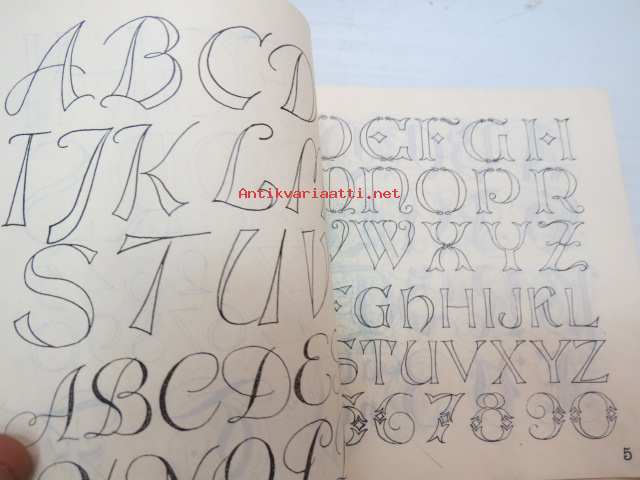 A B C D
I J K L
S T U V
A B C D E
Antikvariaatti.net
D E F G H
N O P R
V W X Y Z
F G H H I J K L
S T U V X Y Z
5 6 7 8 9 0
5